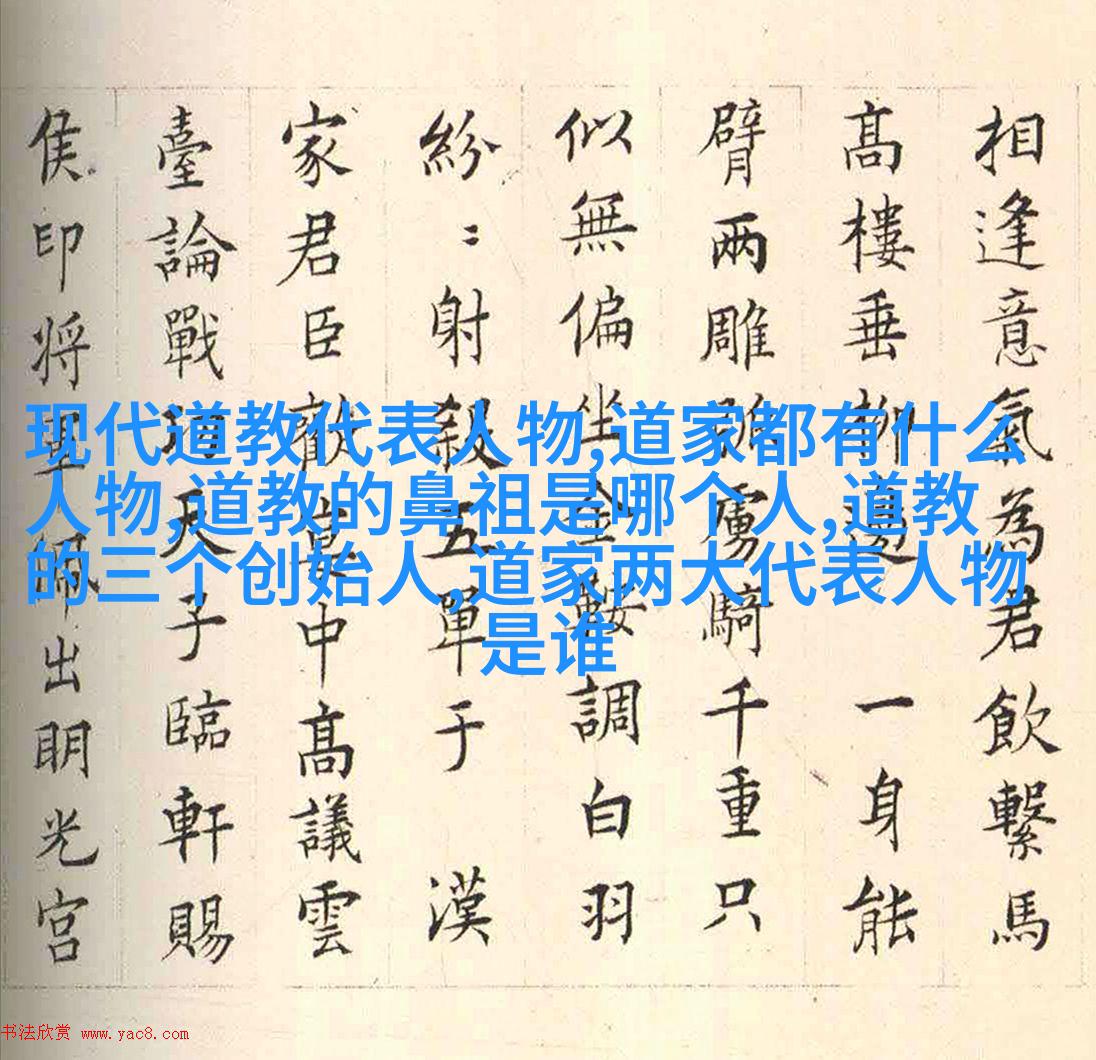 相逢意氣為君飲繫馬
髙樓垂柳邊 一身能
臂兩雕弧虜騎千重只
似無偏坐金鞍調白羽
紛〻射殺五單于 漢
家君臣歡宴中髙議雲
臺論戰功天子臨軒賜
侯印将軍珮出明光宫
现代道教代表人物,道家都有什么
人物,道教的鼻祖是哪个人,道教
的三个创始人,道家两大代表人物
是谁
书法欣赏 www.yac8.com